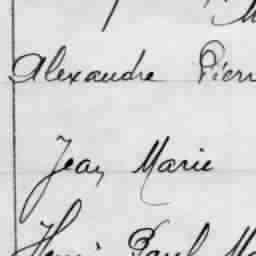 Alexandre Pierr
Jean Marie
Henri Paul Ma